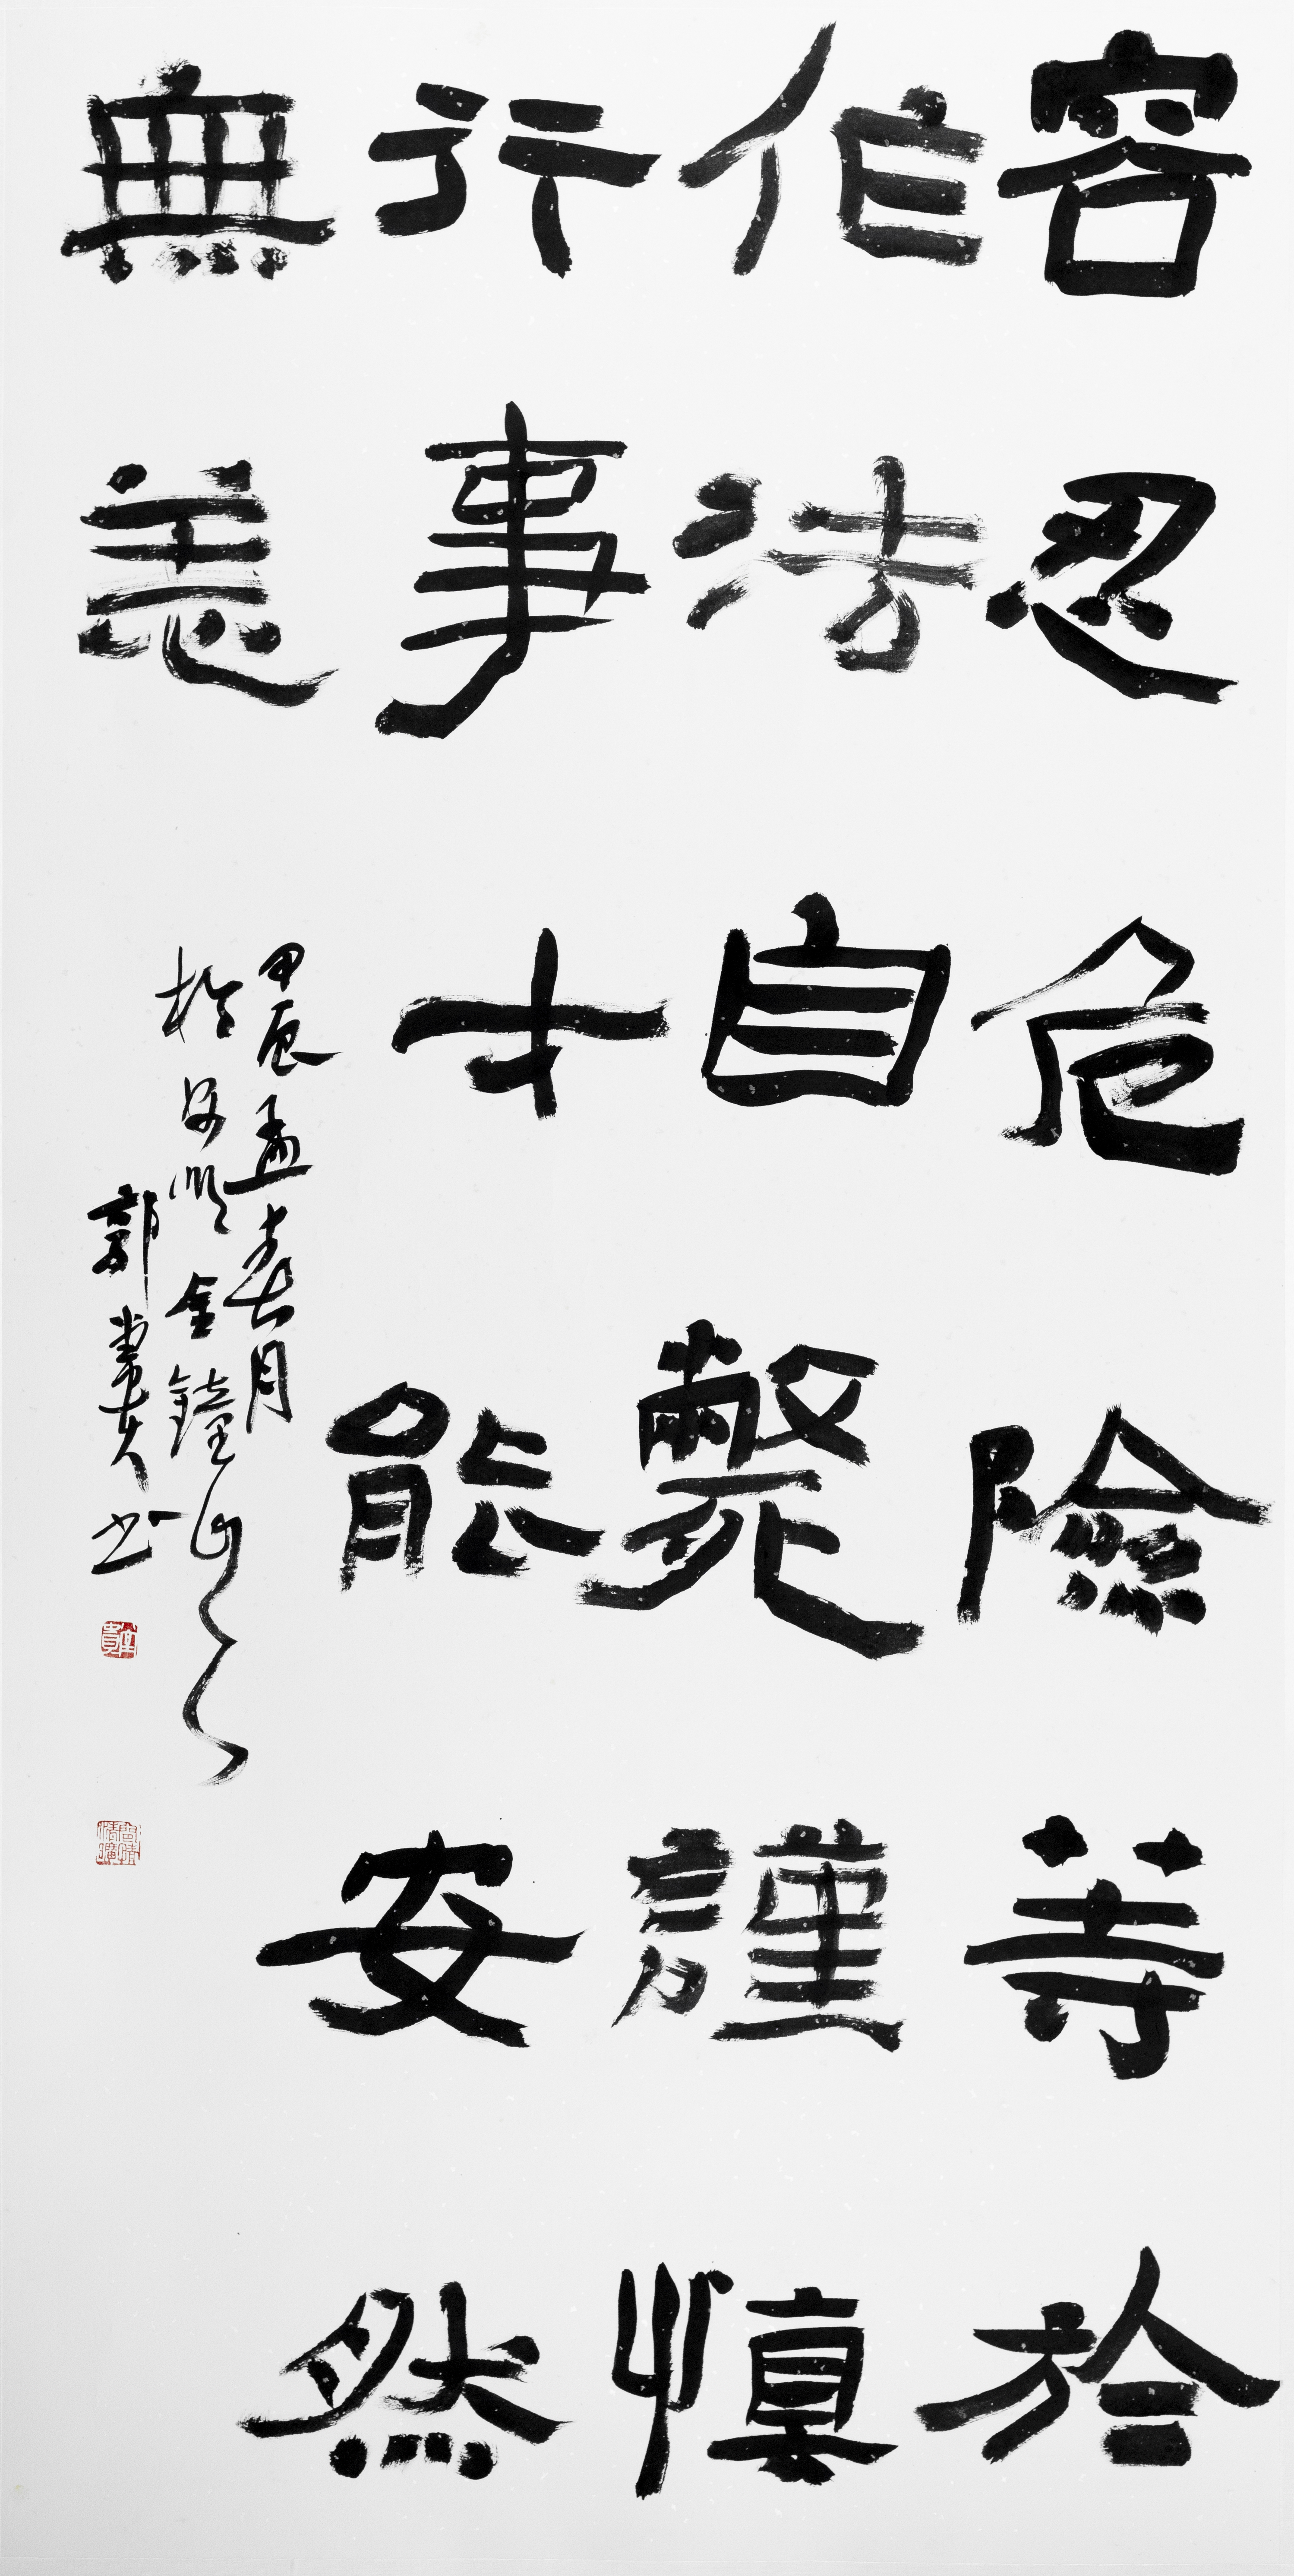 容忍危險等於
作法自斃謹慎
行事才能安然
無恙
甲辰孟春月
於 金鐘山
郭 書